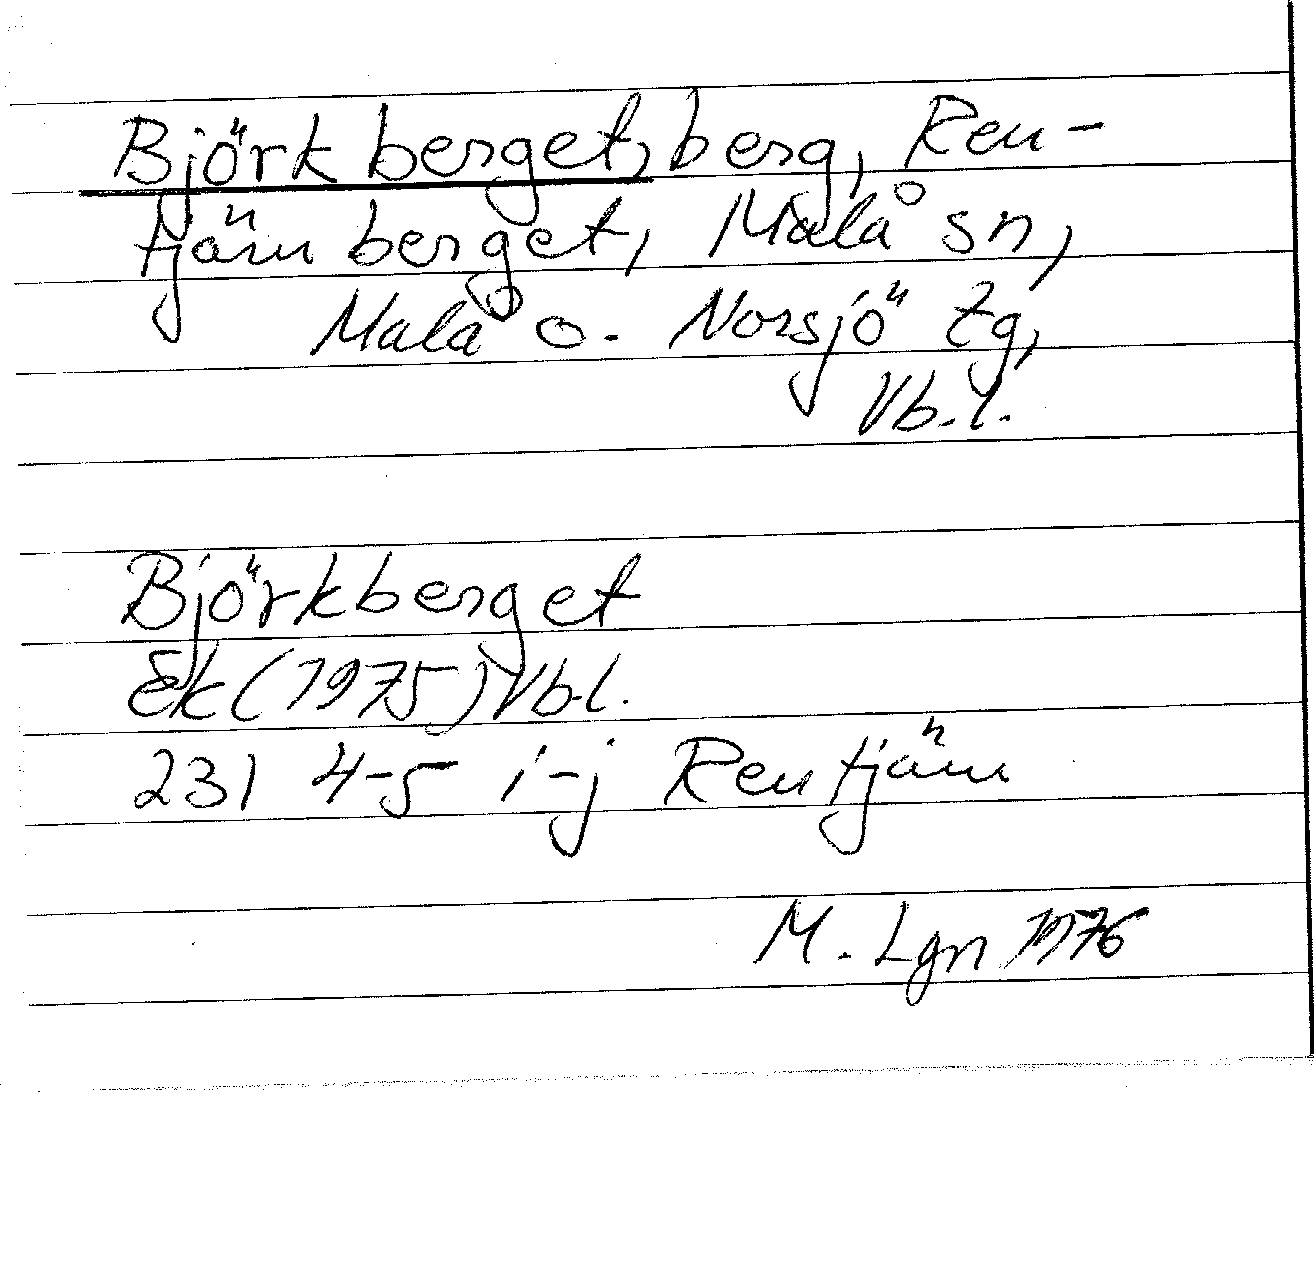 Björkberget, berg, Ren-
tjärnberget, Malå sn,
Malå o. Norsjö tg,
Vb.l.
Björkberget
Ek (1975) Vb.l.
231 4-5 i-j Rentjärn
M. Lgn 1976